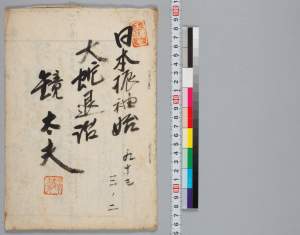 日本振袖始
大蛇退治
鏡太夫
九十三
三、二